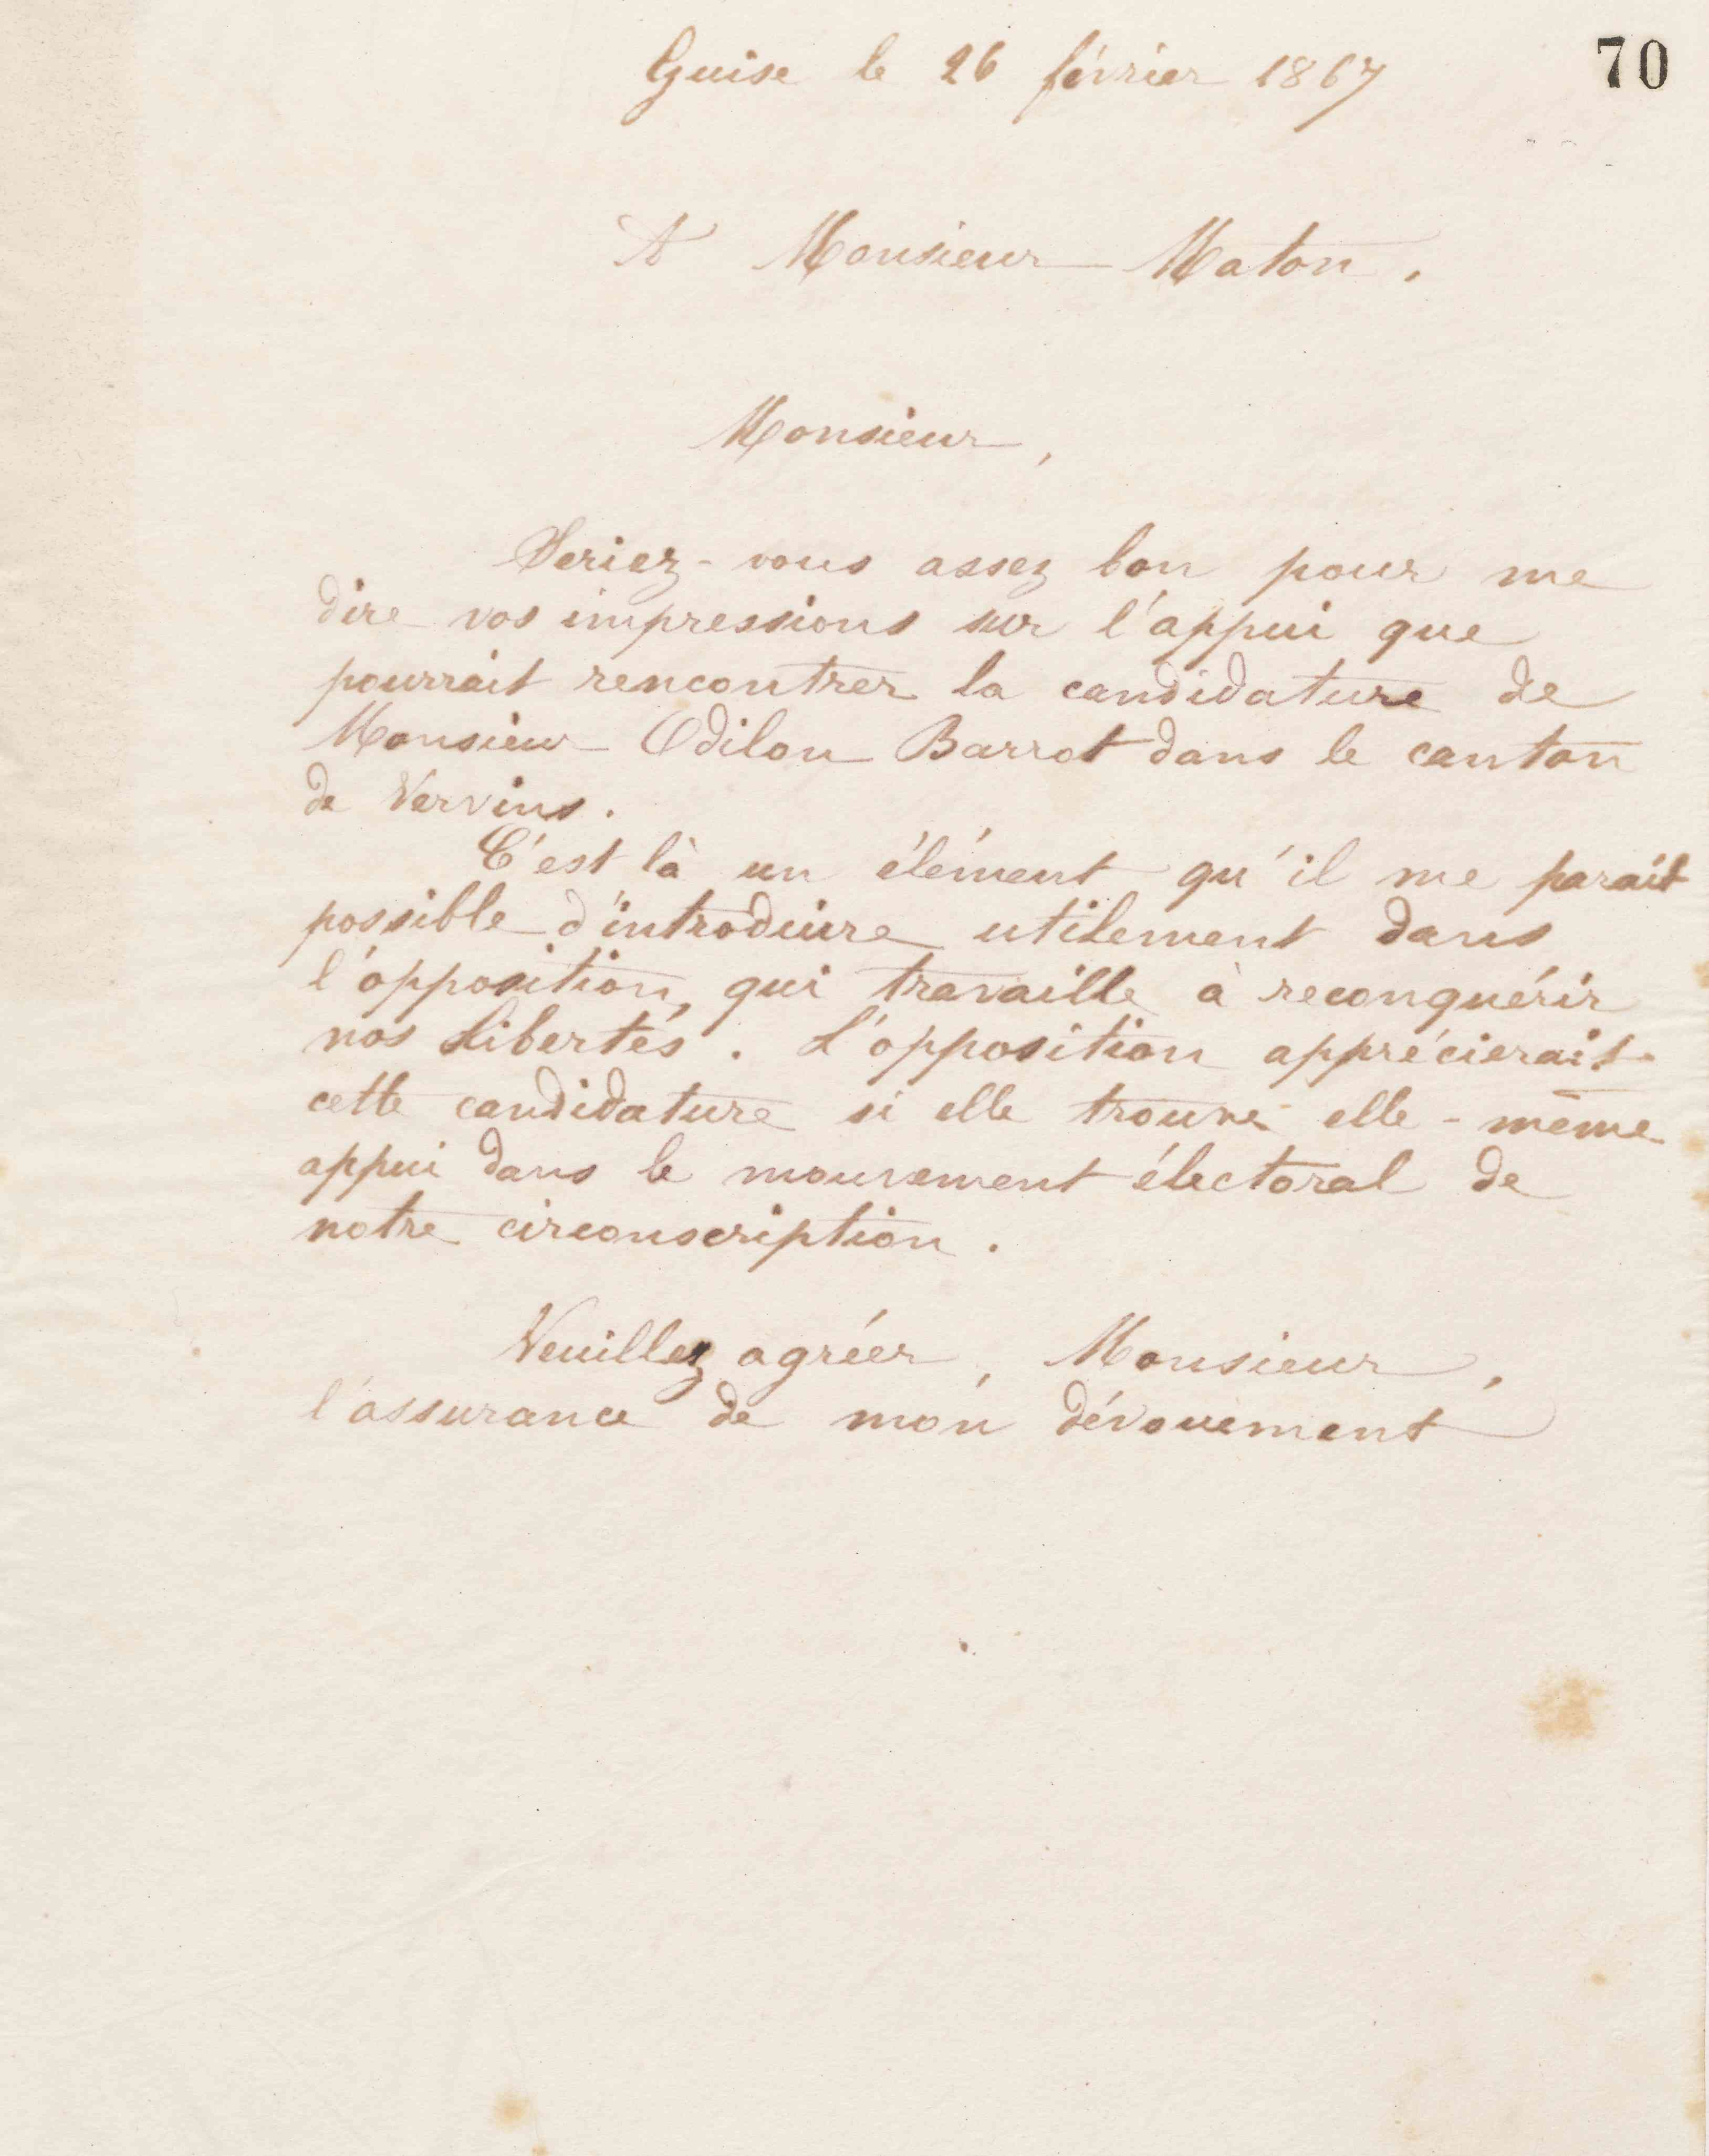 70
Guise le 26 février 1867
A Monsieur Maton.
Monsieur,
Seriez-vous assez bon pour me
dire vos impressions sur l'appui que
pourrait rencontrer la candidature de
Monsieur Odilon Barrot dans le canton
de Vervins.
C'est là un élément qu'il me parait
possible d'introduire utilement dans
l'opposition, qui travaille à reconquérir
nos Libertés. L'opposition apprécierait
cette candidature si elle trouve elle-même
appui dans le mouvement électoral de
notre circonscription.
Veuillez agréer, Monsieur,
l'assurance de mon dévouement